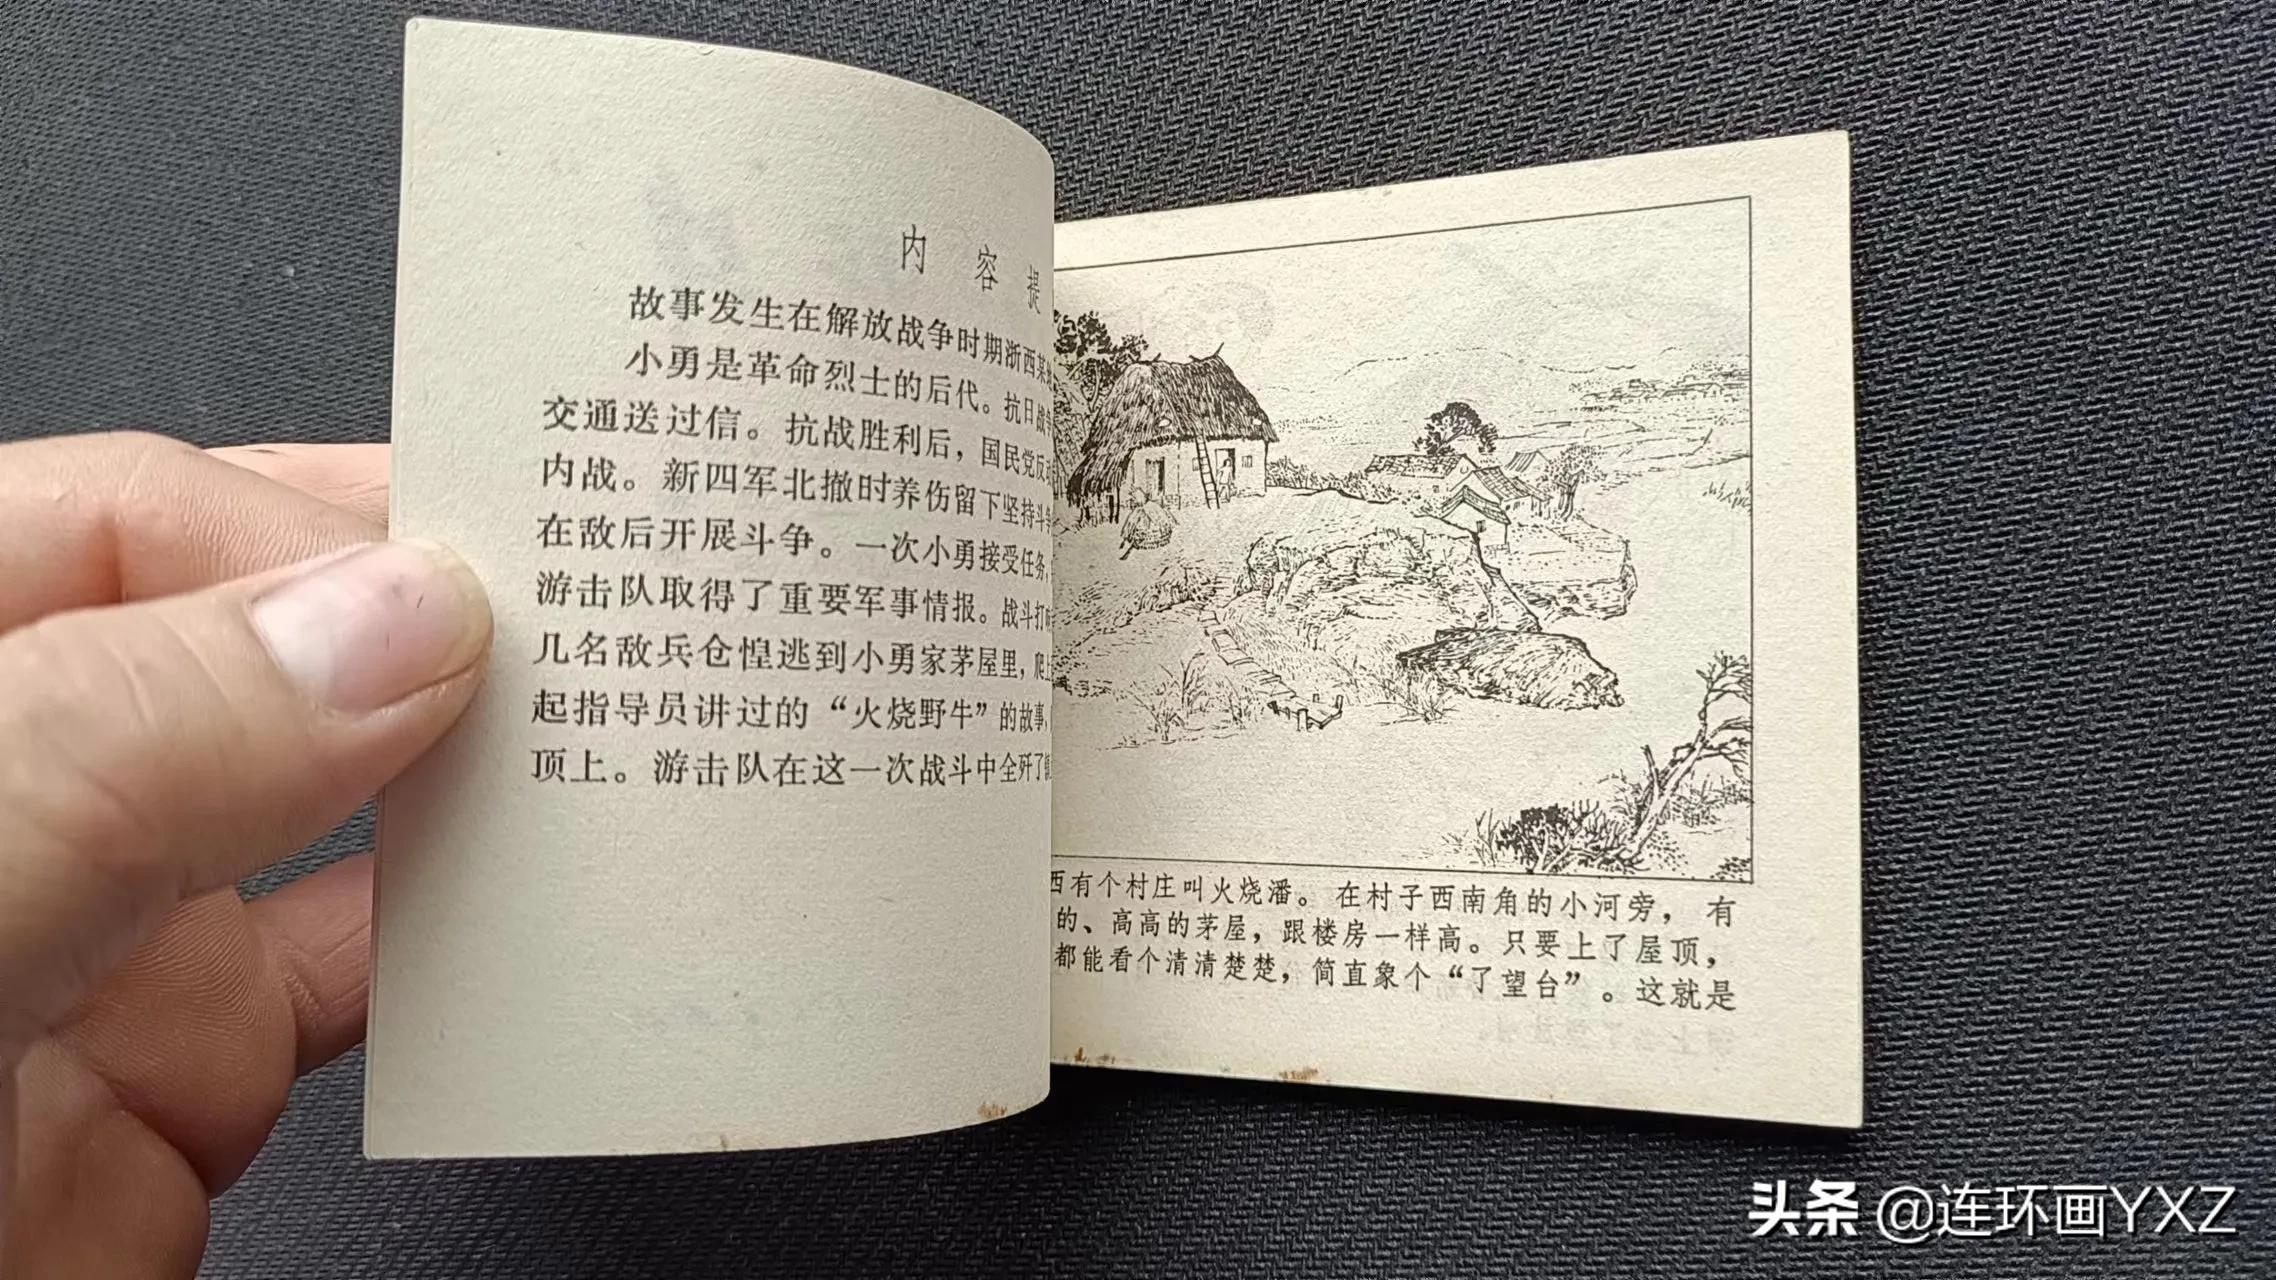 内 容 提
故事发生在解放战争时期浙西某
小勇是革命烈士的后代。抗日战
交通送过信。抗战胜利后，国民党反
内战。新四军北撤时养伤留下坚持斗争
在敌后开展斗争。一次小勇接受任务，
游击队取得了重要军事情报。战斗打
几名敌兵仓惶逃到小勇家茅屋里，爬
起指导员讲过的“火烧野牛”的故事，
顶上。游击队在这一次战斗中全歼了
西有个村庄叫火烧潘。在村子西南角的小河旁，有
的、高高的茅屋，跟楼房一样高。只要上了屋顶，
都能看个清清楚楚，简直象个“了望台”。这就是
头条 @连环画YXZ